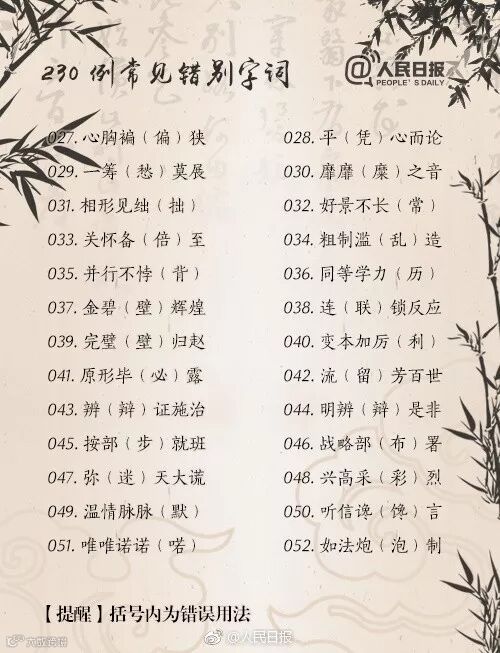 230例常见错别字词
@人民日报
PEOPLE'S DAILY
027. 心胸褊（偏）狭 028. 平（凭）心而论
029. 一筹（愁）莫展 030. 靡靡（糜）之音
031. 相形见绌（拙） 032. 好景不长（常）
033. 关怀备（倍）至 034. 粗制滥（乱）造
035. 并行不悖（背） 036. 同等学力（历）
037. 金碧（壁）辉煌 038. 连（联）锁反应
039. 完璧（壁）归赵 040. 变本加厉（利）
041. 原形毕（必）露 042. 流（留）芳百世
043. 辨（辩）证施治 044. 明辨（辩）是非
045. 按部（步）就班 046. 战略部（布）署
047. 弥（迷）天大谎 048. 兴高采（彩）烈
049. 温情脉脉（默） 050. 听信谗（馋）言
051. 唯唯诺诺（喏） 052. 如法炮（泡）制
【提醒】括号内为错误用法
@人民日报